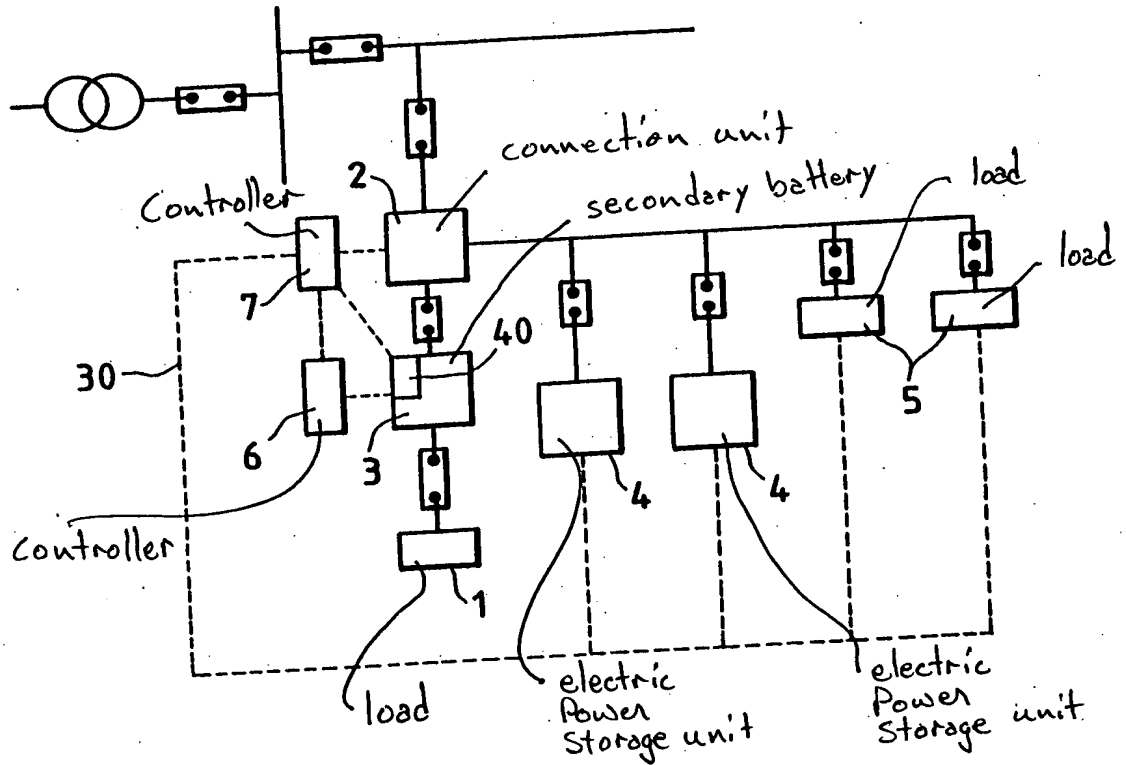 connection unit
2
secondary battery
load
Controller
load
7
40
30
5
6
3
4
4
controller
1
load
electric
Power
Storage unit
electric
Power
Storage unit